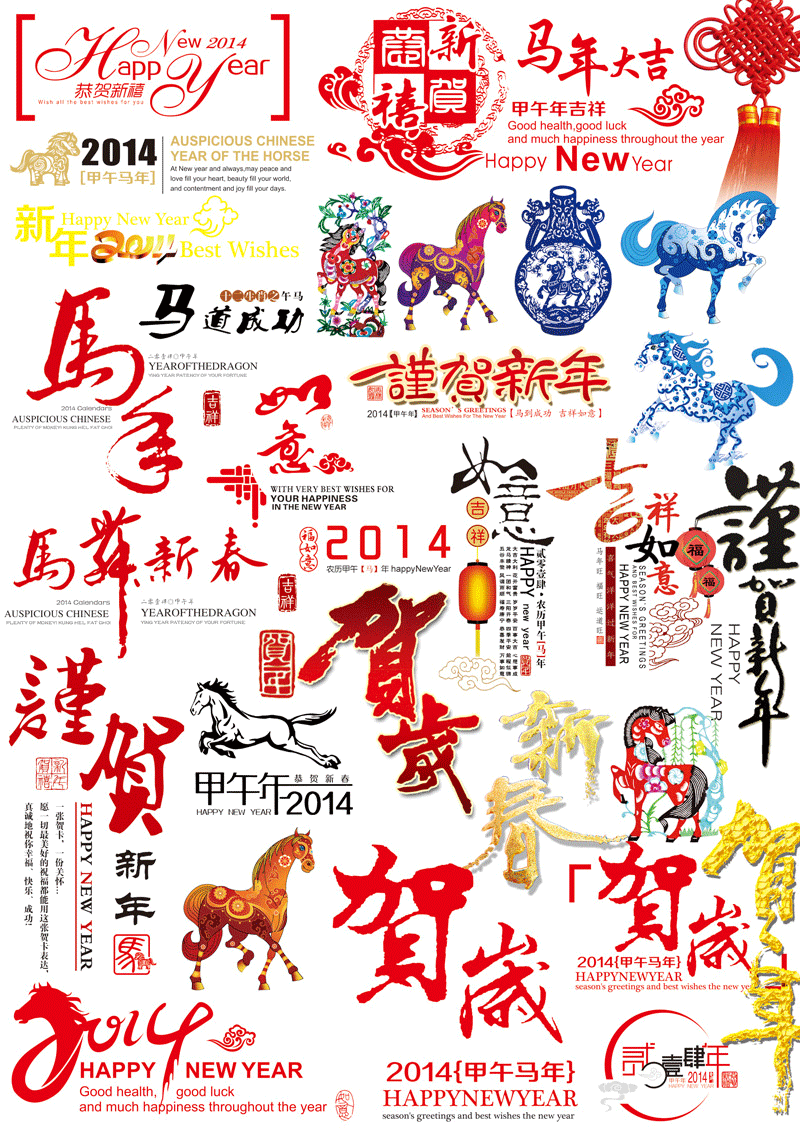 Happy New 2014 Year
恭贺新禧
Wish all the best wishes for you
恭贺新禧
马年大吉
甲午年吉祥
Good health,good luck
and much happiness throughout the year
Happy New Year
2014
[甲午马年]
AUSPICIOUS CHINESE
YEAR OF THE HORSE
At New year and always,may peace and
love fill your heart, beauty fill your world,
and contentment and joy fill your days.
新年
Happy New Year
2014
Best Wishes
十二生肖之午马
马道成功
馬年
二零壹肆〇甲午年
YEAROFTHEDRAGON
YING YEAR PATENCY OF YOUR FORTUNE
2014 Calendars
AUSPICIOUS CHINESE
PLENTY OF MOKEY! KUNG HEI, FAT GHO
吉祥
如意
謹賀新年
2014【甲午年】
SEASON'S GREETINGS
And Best Wishes For The New Year
【马到成功 吉祥如意】
WITH VERY BEST WISHES FOR
YOUR HAPPINESS
IN THE NEW YEAR
馬舞新春
2014 Calendars
AUSPICIOUS CHINESE
PLENTY OF MOKEY! KUNG HEI, FAT GHO
二零壹肆〇甲午年
YEAROFTHEDRAGON
YING YEAR PATENCY OF YOUR FORTUNE
福如意
2014
农历甲午【马】年 happyNewYear
吉祥
如意
吉祥
贰零壹肆·农历甲午【马】年
HAPPY new year
吉祥如意
SEASON'S GREETINGS
AND BEST WISHES FOR
HAPPY NEW YEAR
喜气洋洋过新年
马年旺 福旺 运道旺
福
福
謹賀新年
HAPPY
NEW YEAR
賀年
賀歲
謹賀新年
HAPPY NEW YEAR
一张贺卡，一份关怀…
愿一切最美好的祝福都能用这张贺卡表达，
真诚地祝你幸福、快乐、成功!!
馬
甲午年
恭贺新春
HAPPY NEW YEAR
2014
新春
賀歲
2014{甲午马年}
HAPPYNEWYEAR
season's greetings and best wishes the new year
賀歲
2014{甲午马年}
HAPPYNEWYEAR
season's greetings and best wishes the new year
賀年
2014
HAPPY NEW YEAR
Good health, good luck
and much happiness throughout the year
如意
贰〇壹肆年
甲午年
HAPPY NEW YEAR
2014